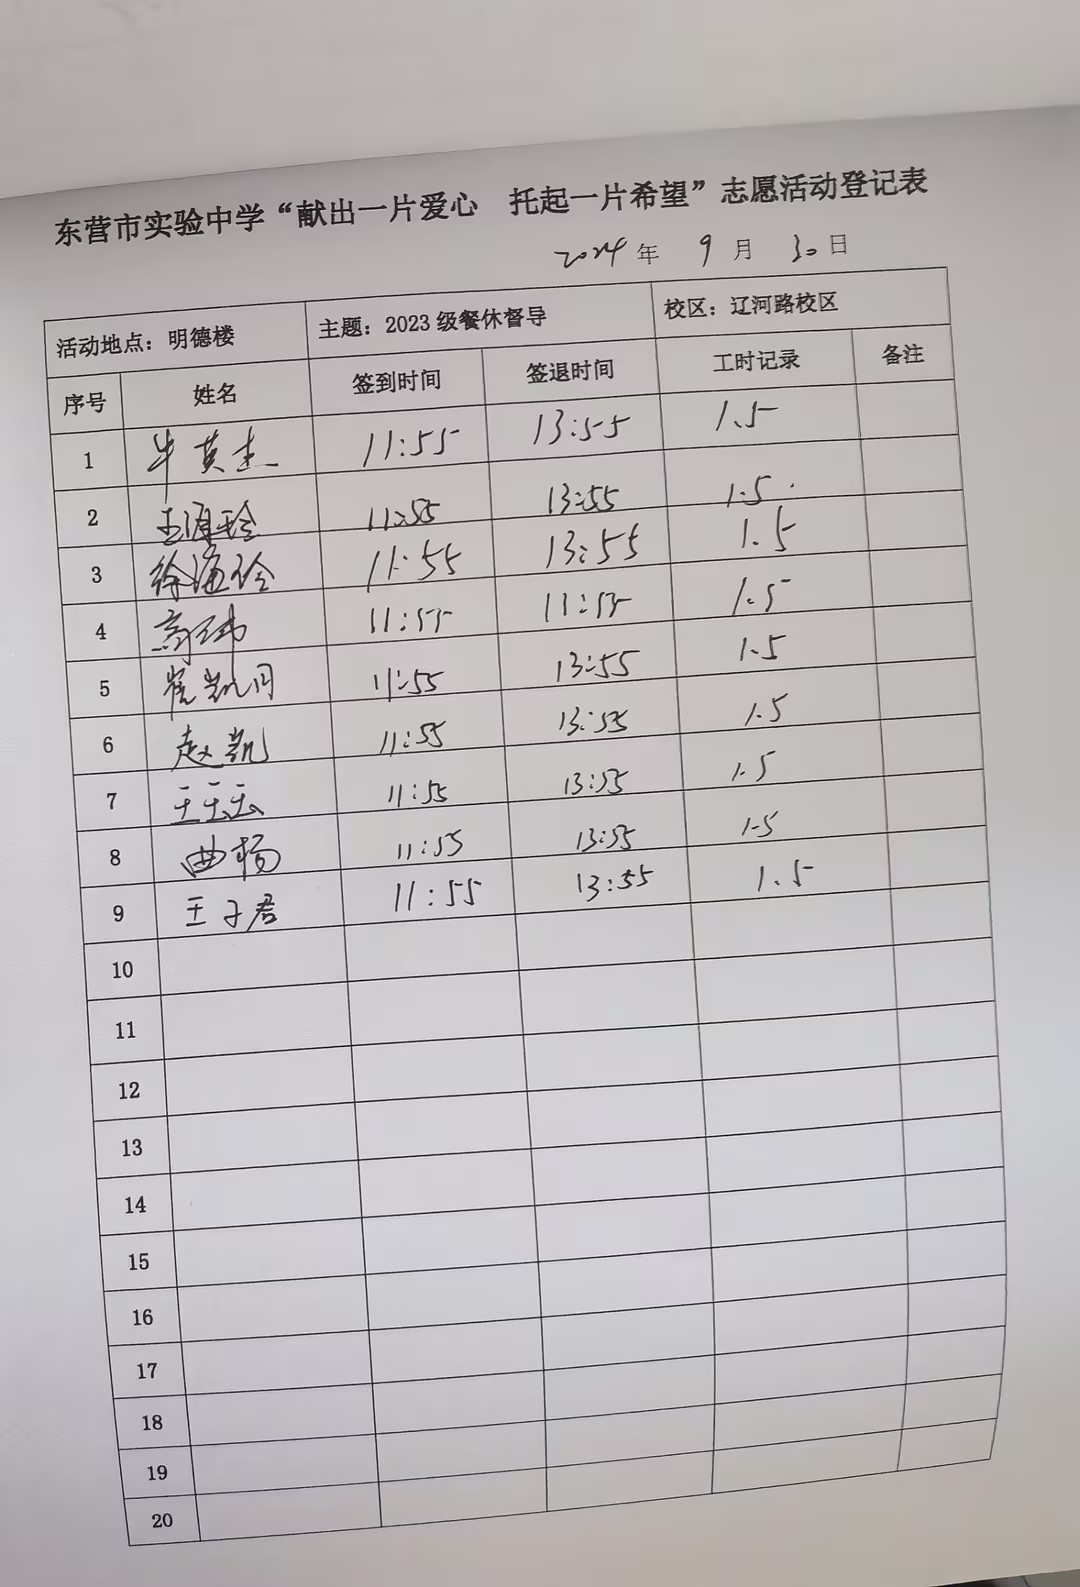 东营市实验中学“献出一片爱心 托起一片希望”志愿活动登记表
2024年 9月 30日
活动地点：明德楼 主题：2023级餐休督导 校区：辽河路校区
序号 姓名 签到时间 签退时间 工时记录 备注
1 牛英杰 11:55 13:55 1.5
2 11:55 13:55 1.5
3 11:55 13:55 1.5
4 高伟 11:55 11:55 1.5
5 崔凯月 11:55 13:55 1.5
6 赵凯 11:55 13:55 1.5
7 11:55 13:55 1.5
8 曲杨 11:55 13:55 1.5
9 王子君 11:55 13:55 1.5
10
11
12
13
14
15
16
17
18
19
20